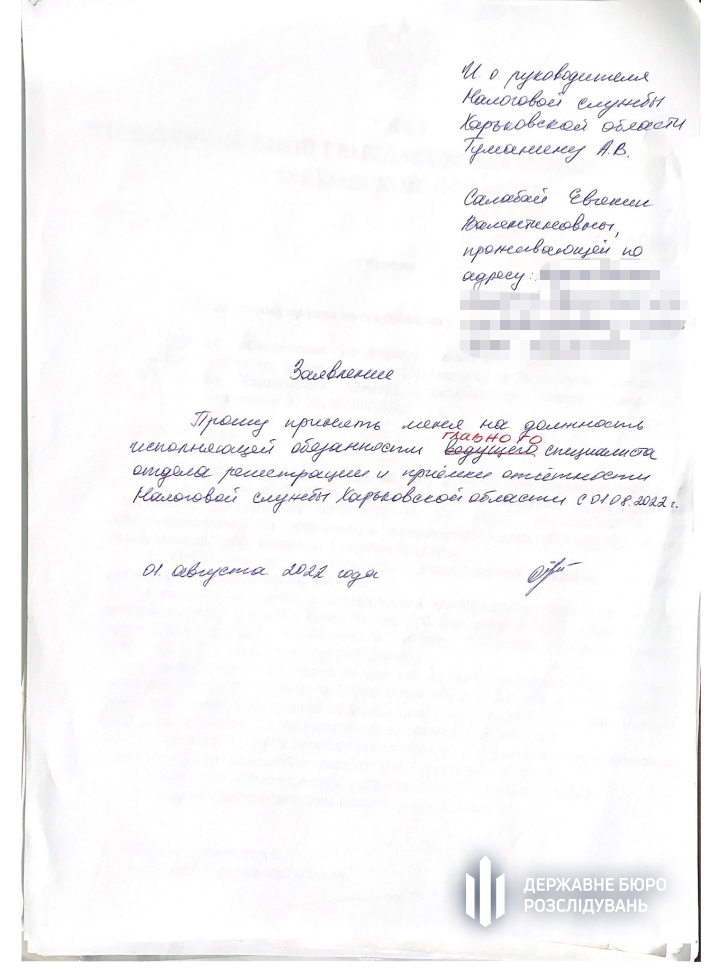 И. о руководителя
Налоговой службы
Харьковской области
Туманину А.В.
Салабай Евгении
Валентиновны,
проживающей по
адресу:
Заявление
Прошу принять меня на должность
главного
исполняющей обязанности ведущего специалиста
отдела регистрации и приёмки отчётности
Налоговой службы Харьковской области с 01.08.2022 г.
01. августа 2022 года
ДЕРЖАВНЕ БЮРО
РОЗСЛІДУВАНЬ